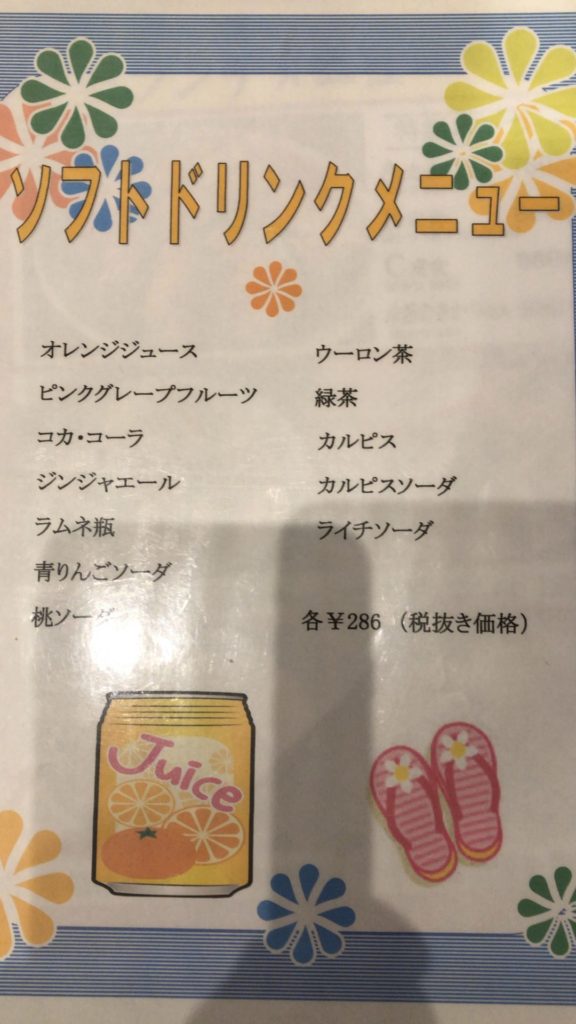 ソフトドリンクメニュー
オレンジジュース
ピンクグレープフルーツ
コカ・コーラ
ジンジャエール
ラムネ瓶
青りんごソーダ
桃ソーダ
ウーロン茶
緑茶
カルピス
カルピスソーダ
ライチソーダ
各￥286 （税抜き価格）
Juice